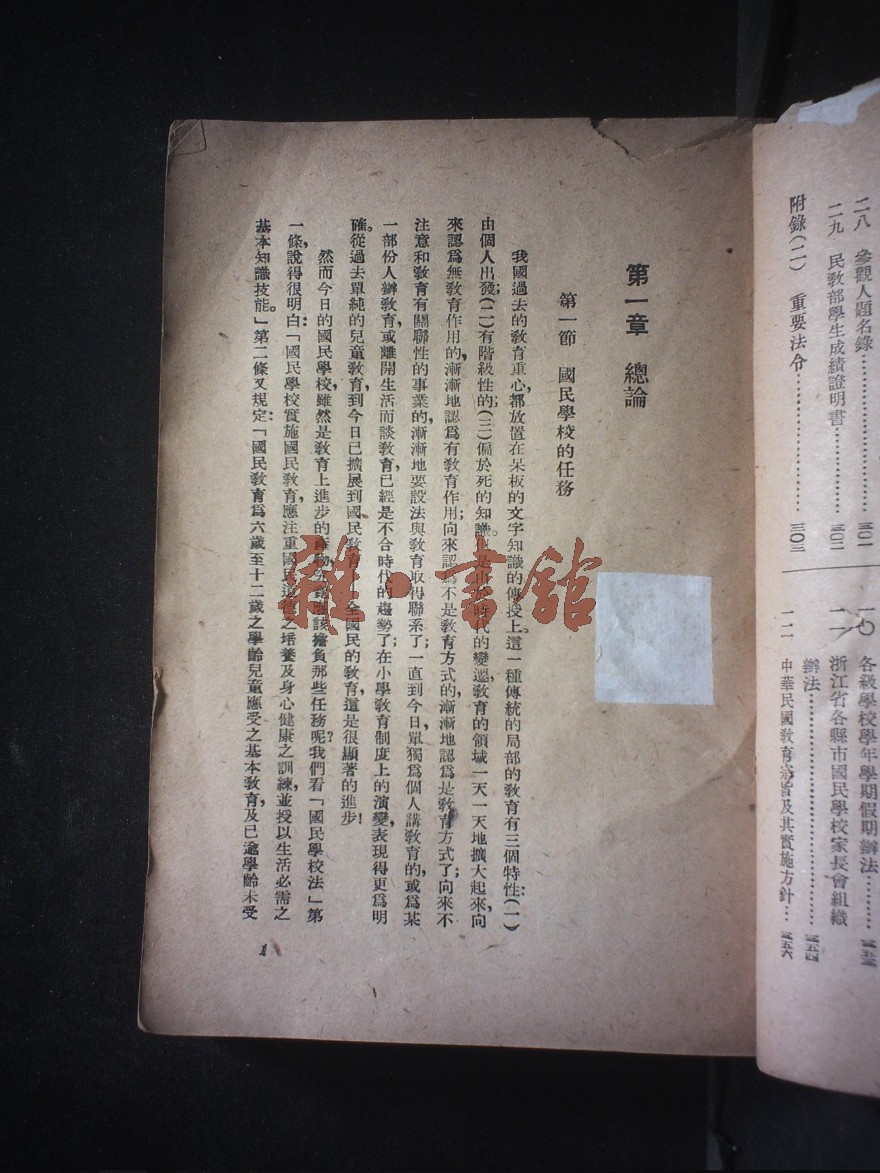 二八　參觀人題名錄……………………三〇一
二九　民教部學生成績證明書……………三〇二
附錄(二)　重要法令……………………三〇三
一〇　各級學校學年學期假期辦法………
一一　浙江省各縣市國民學校家長會組織
辦法……………………三五四
一二　中華民國教育宗旨及其實施方針…三五六
第一章　總論
第一節　國民學校的任務
我國過去的教育重心,都放置在呆板的文字知識的傳授上。這一種傳統的局部的教育有三個特性:(一)
由個人出發;(二)有階級性的;(三)偏於死的知識。但是由於時代的變遷,教育的領域一天一天地擴大起來,向
來認爲無教育作用的,漸漸地認爲有教育作用;向來認爲不是教育方式的,漸漸地認爲是教育方式了;向來不
注意和教育有關聯性的事業的,漸漸地要設法與教育取得聯系了。一直到今日,單獨爲個人講教育的,或爲某
一部份人辦教育,或離開生活而談教育,已經是不合時代的趨勢了。在小學教育制度上的演變,表現得更爲明
確。從過去單純的兒童教育,到今日已擴展到國民教育——全國民的教育,這是很顯著的進步!
然而今日的國民學校,雖然是教育上進步的產物,究竟應該擔負那些任務呢?我們看「國民學校法」第
一條,說得很明白:「國民學校實施國民教育,應注重國民道德之培養及身心健康之訓練,並授以生活必需之
基本知識技能。」第二條又規定:「國民教育爲六歲至十二歲之學齡兒童應受之基本教育,及已逾學齡未受
1
雜·書館